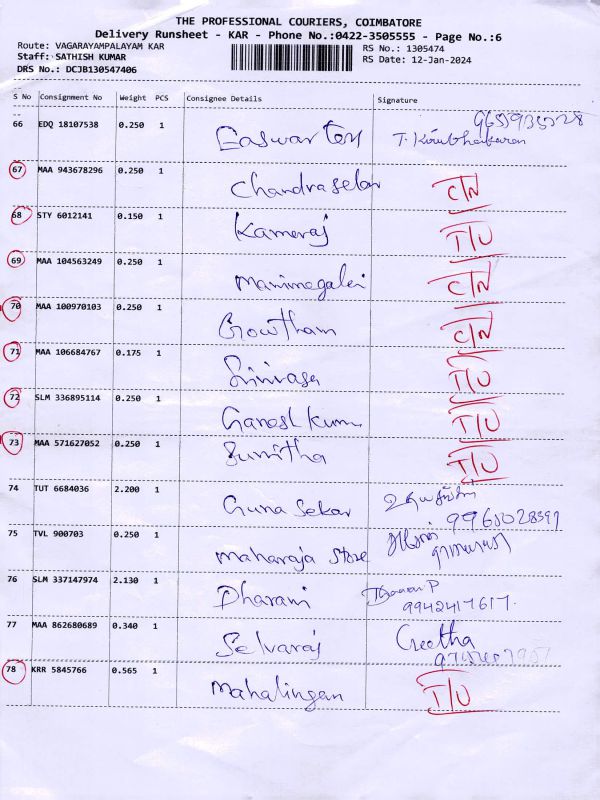 THE PROFESSIONAL COURIERS, COIMBATORE
Delivery Runsheet - KAR - Phone No.:0422-3505555 - Page No.:6
Route: VAGARAYAMPALAYAM KAR RS No.: 1305474
Staff: SATHISH KUMAR RS Date: 12-Jan-2024
DRS No.: DCJB130547406
S No Consignment No Weight PCS Consignee Details Signature
66 EDQ 18107538 0.250 1 Easwar
67 MAA 943678296 0.250 1 Chandraseker C/N
68 STY 6012141 0.150 1 Kameraj T/U
69 MAA 104563249 0.250 1 Manimegalei C/N
70 MAA 100970103 0.250 1 Gowtham C/N
71 MAA 106684767 0.175 1 Srinivasa T/U
72 SLM 336895114 0.250 1 Ganesh kumar T/U
73 MAA 571627052 0.250 1 Sumitha T/U
74 TUT 6684036 2.200 1 Guna Sekar
75 TVL 900703 0.250 1 Maharaja Store
76 SLM 337147974 2.130 1 Dharani
9942417617.
77 MAA 862680689 0.340 1 Selvaraj Geetha
78 KRR 5845766 0.565 1 Mahalingam T/U